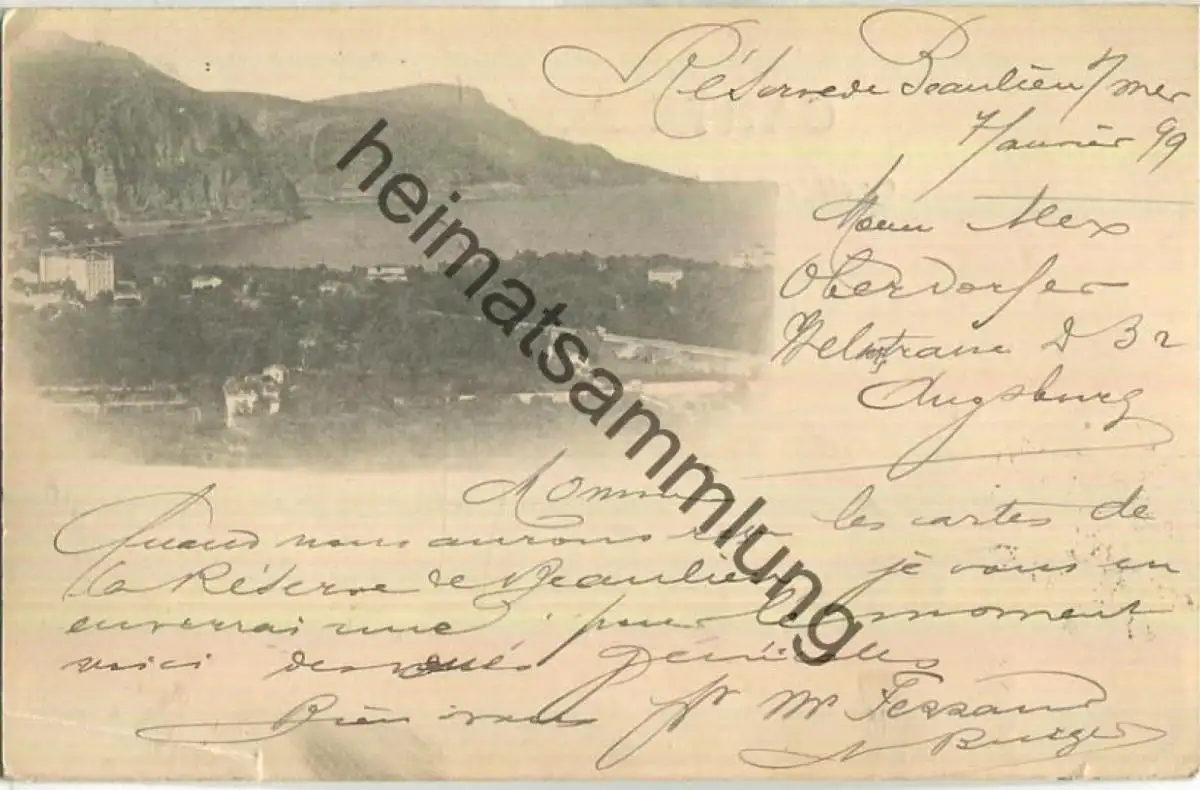 Réserve de Beaulieu s/mer
7 Janvier 99
Alex
Oberdorfer
D 32
Augsburg
Monsieur
Quand nous aurons les cartes de
la Réserve de Beaulieu je vous en
enverrai une pour le moment
voici des vues générales
Bien à vous pr Mr Feraud
heimatsammlung